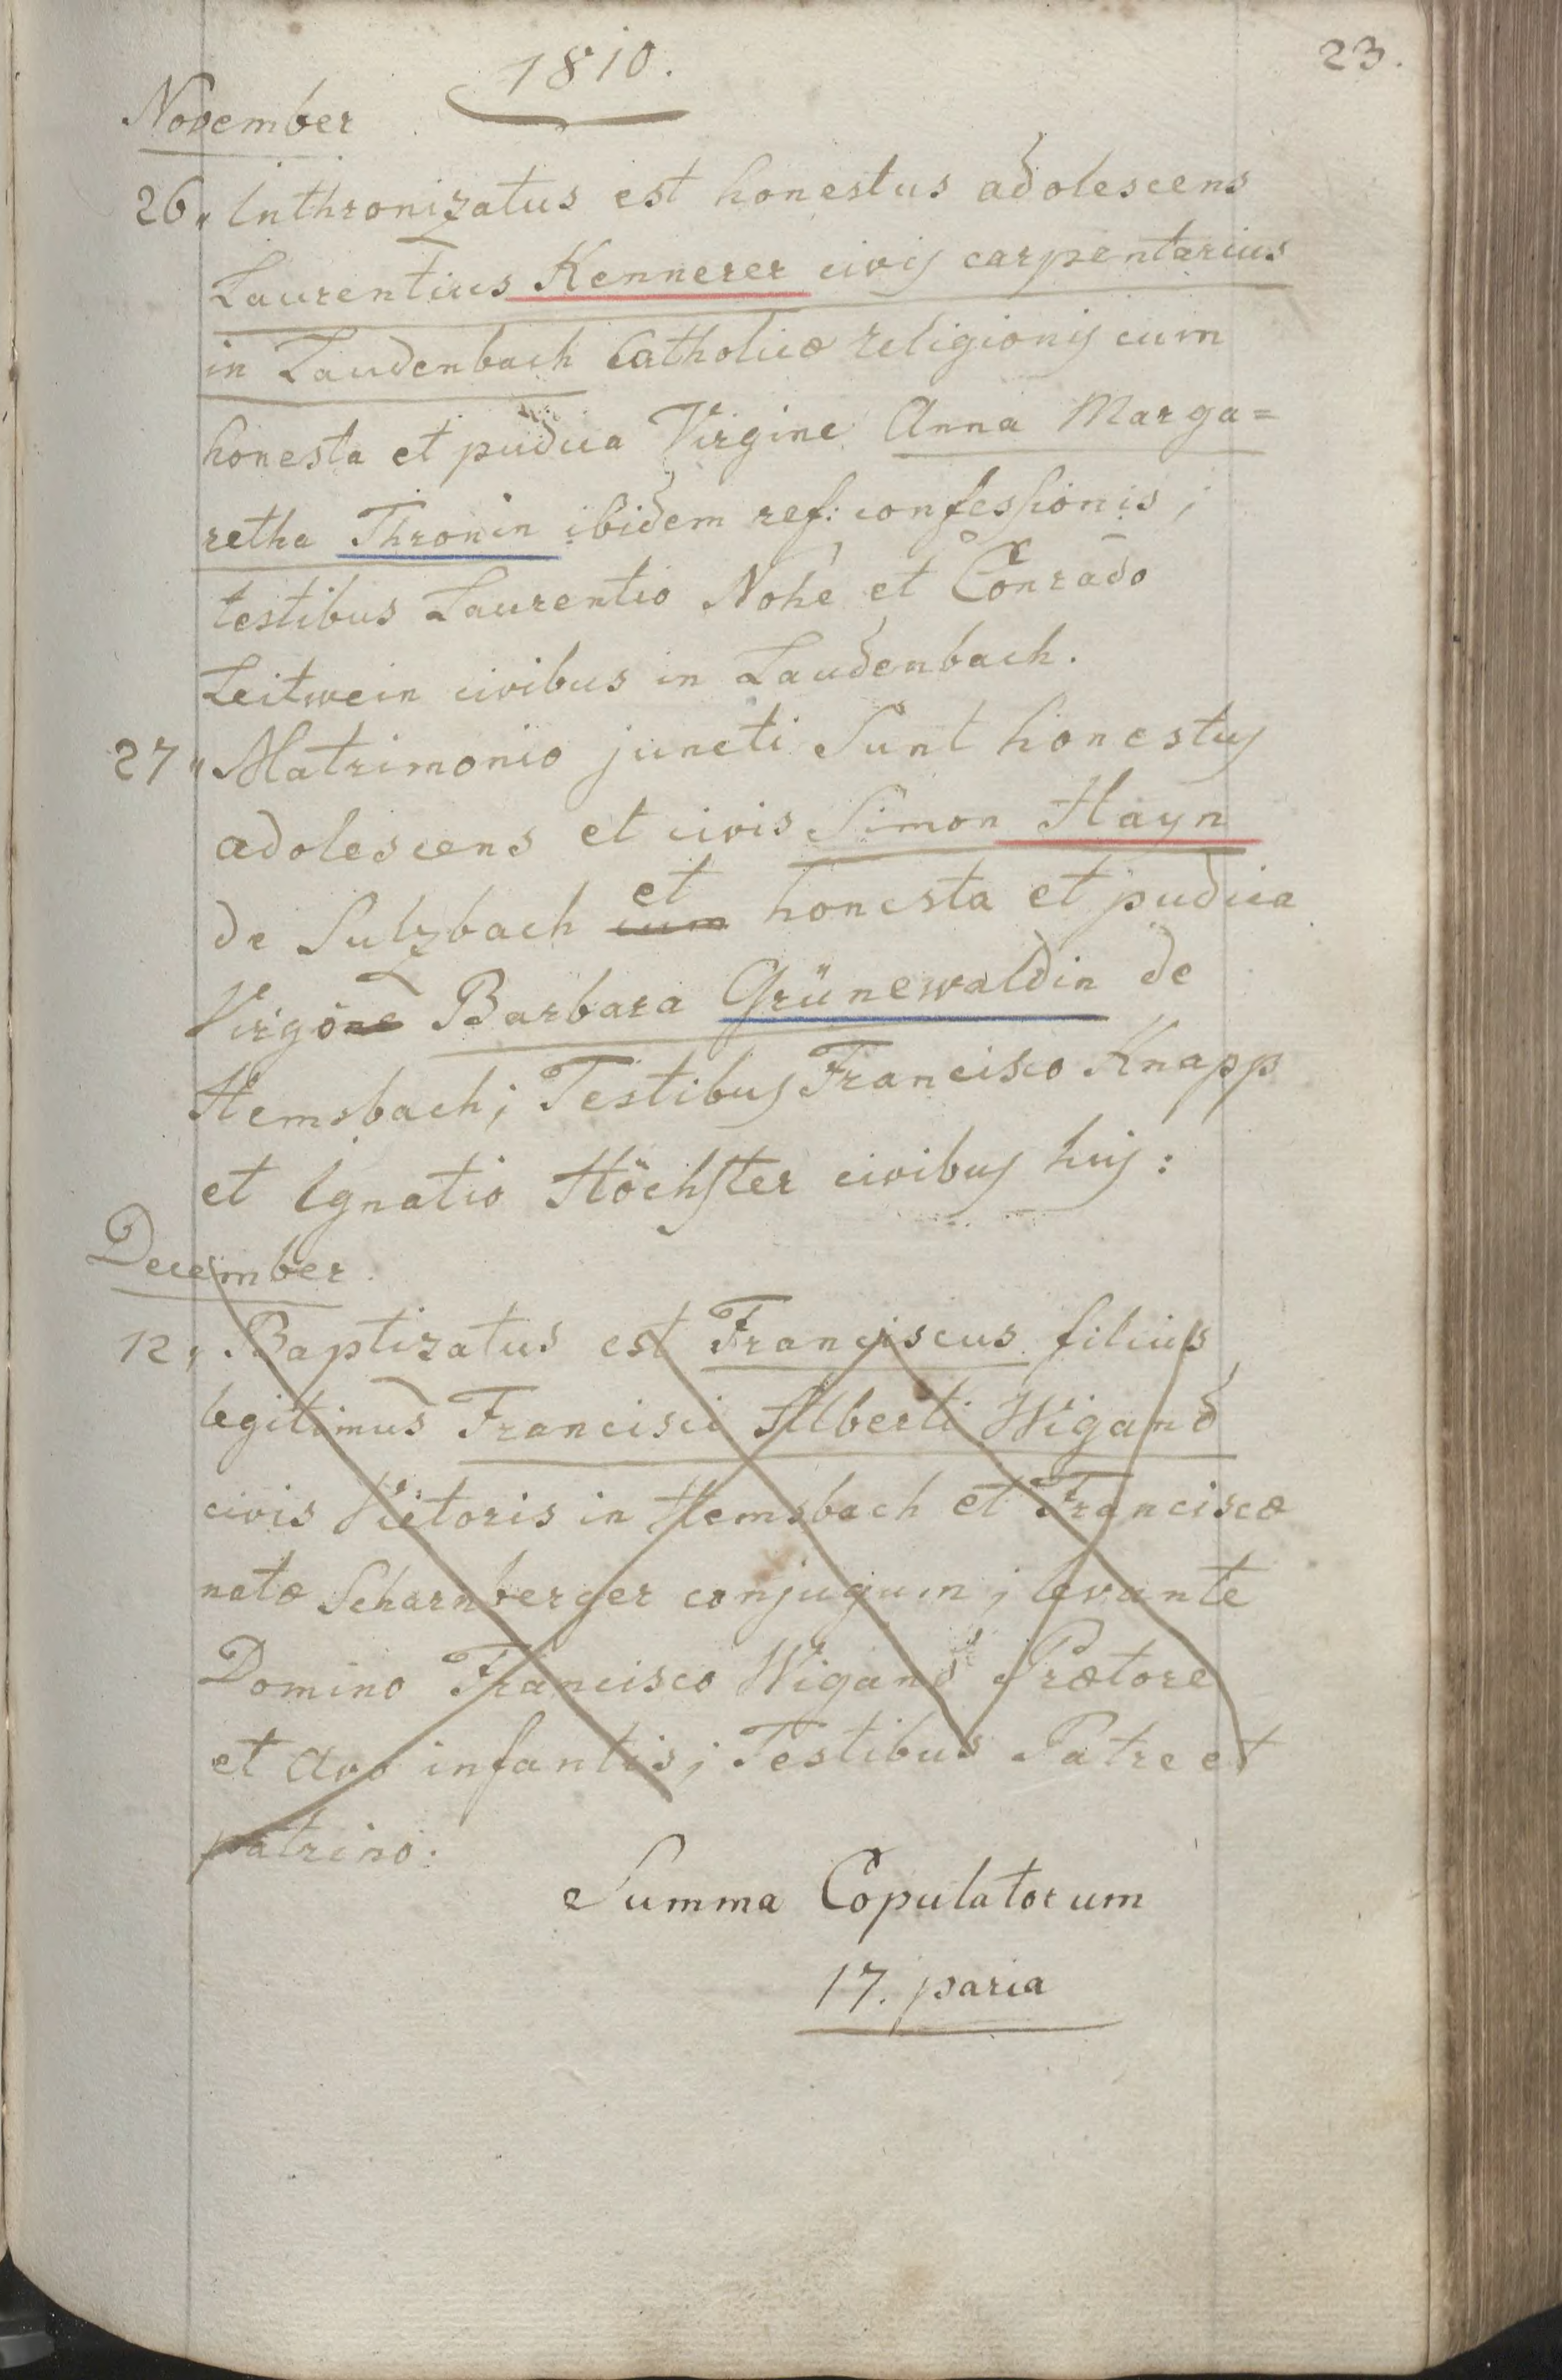 1810.
23.
November
26„ Inthronizatus est honestus adolescens
Laurentius Kennerer civis carpentarius
in Laudenbach Catholicæ religionis cum
honesta et pudica Virgine Anna Marga=
retha Thronin ibidem ref: confessionis;
testibus Laurentio Nohe et Conrado
Leitwein civibus in Laudenbach.
27„ Matrimonio juncti Sunt honestus
adolescens et civis Simon Hayn
de Sulzbach cum et honesta et pudica
Virgone Barbara Grünewaldin de
Hemsbach; Testibus Francisco Knapp
et Ignatio Höchster civibus huj:
December
12„ Baptizatus est Franciscus filius
legitimus Francisci Alberti Wigand
civis Vietoris in Hemsbach et Franciscæ
natæ Scharnberger conjugum; levante
Domino Francisco Wigand Prætore
et Avo infantis; Testibus Patre et
patrino.
Summa Copulatorum
17. paria